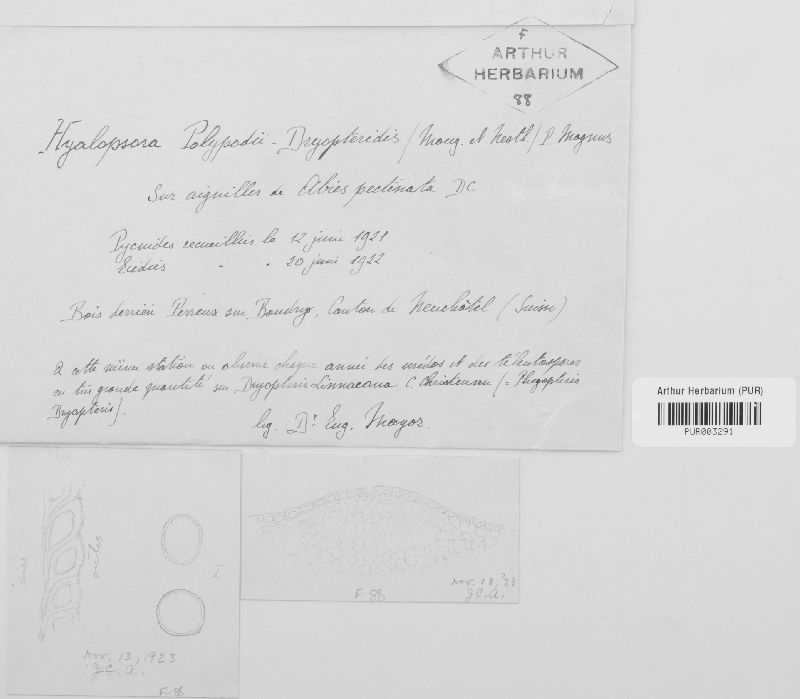 F
ARTHUR
HERBARIUM
88
Hyalopsora Polypodii - Dryopteridis (Moug. et Nestl.) P. Magnus
Sur aiguilles de Abies pectinata DC
Pycnides recueillies le 12 juin 1921
Ecidies " " 20 juin 1922
Bois derrière Perreux sur Boudry, Canton de Neuchâtel (Suisse)
A cette même station on observe chaque année des urédos et des téleutospores
en très grande quantité sur Dryopteris Linnaeana C. Christensen (= Phegopteris
Dryopteris).
leg. Dr Eug. Mayor.
Arthur Herbarium (PUR)
PUR003291
inner
outer
I
Nov. 13, 1923
J.C.A.
F 88
Nov. 13, '23
J.C.A.
F 88